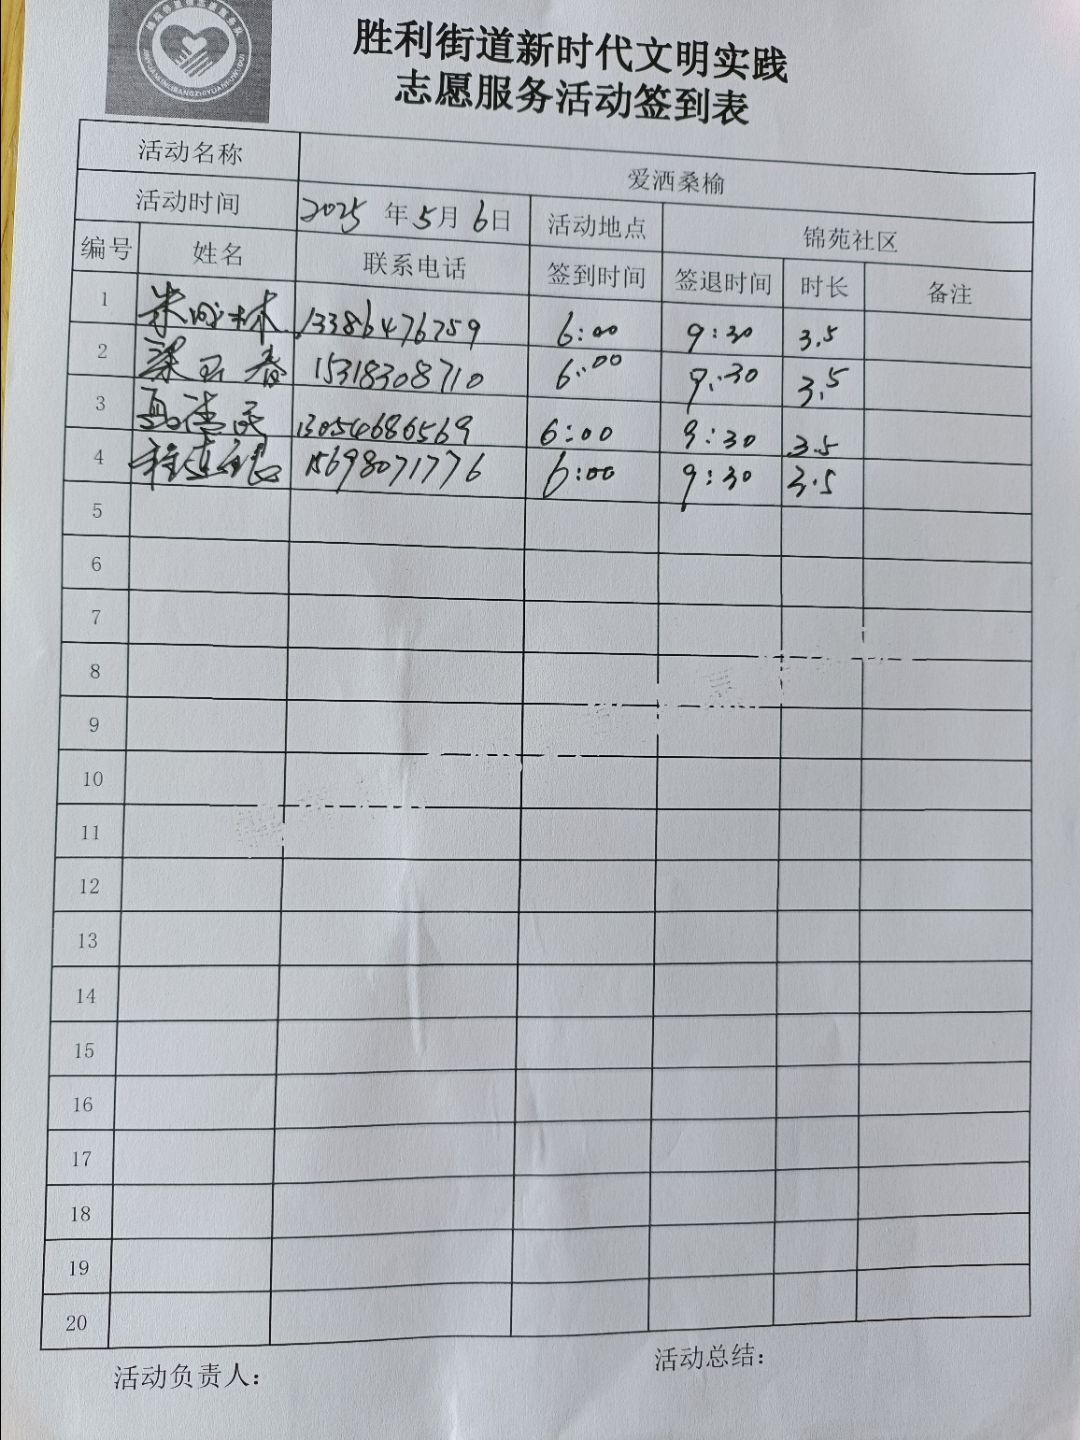 胜利街道新时代文明实践
志愿服务活动签到表
活动名称 爱洒桑榆
活动时间 2025 年 5 月 6 日 活动地点 锦苑社区
编号 姓名 联系电话 签到时间 签退时间 时长 备注
1 13386476759 6:00 9:30 3.5
2 梁玉春 15318308710 6:00 9:30 3.5
3 13054686569 6:00 9:30 3.5
4 15698071776 6:00 9:30 3.5
5
6
7
8
9
10
11
12
13
14
15
16
17
18
19
20
活动负责人： 活动总结：